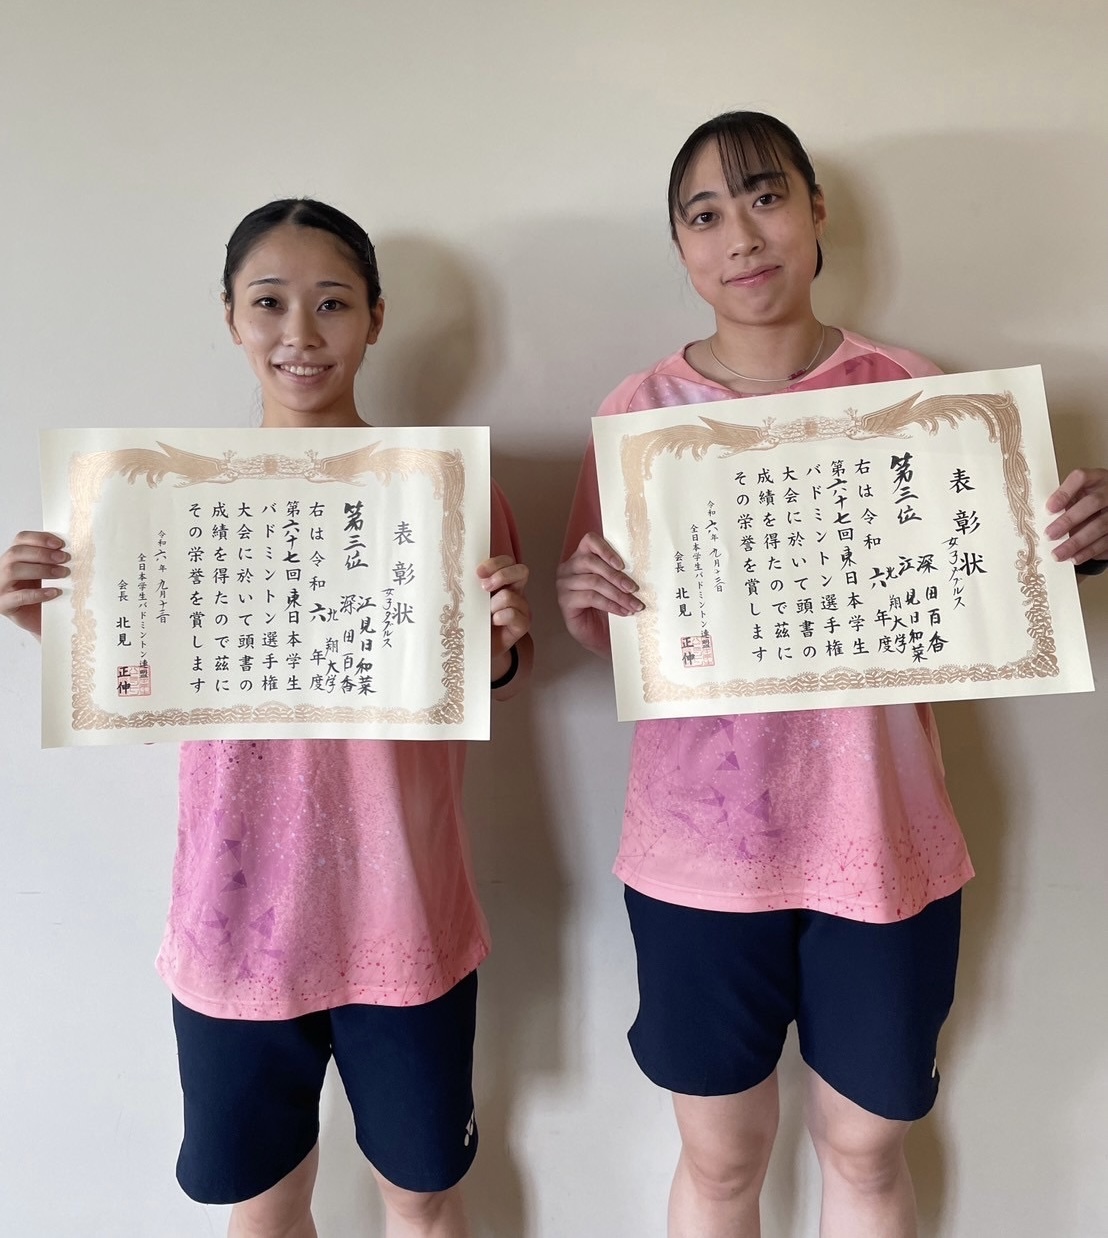 表彰状
女子ダブルス
江見日和菜
第三位 深田百香
北翔大学
右は令和六年度
第六十七回東日本学生
バドミントン選手権
大会に於いて頭書の
成績を得たので茲に
その栄誉を賞します
令和六年九月十三日
全日本学生バドミントン連盟
会長 北見正伸
表彰状
女子ダブルス
深田百香
第三位 江見日和菜
北翔大学
右は令和六年度
第六十七回東日本学生
バドミントン選手権
大会に於いて頭書の
成績を得たので茲に
その栄誉を賞します
令和六年九月十三日
全日本学生バドミントン連盟
会長 北見正伸